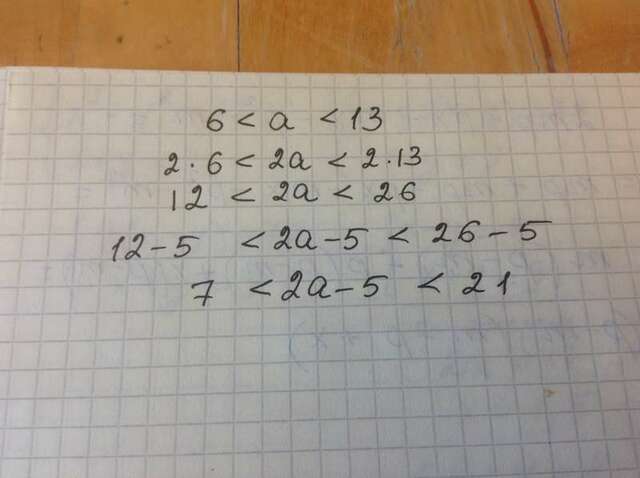 6 < a < 13
2·6 < 2a < 2·13
12 < 2a < 26
12-5 < 2a-5 < 26-5
7 < 2a-5 < 21